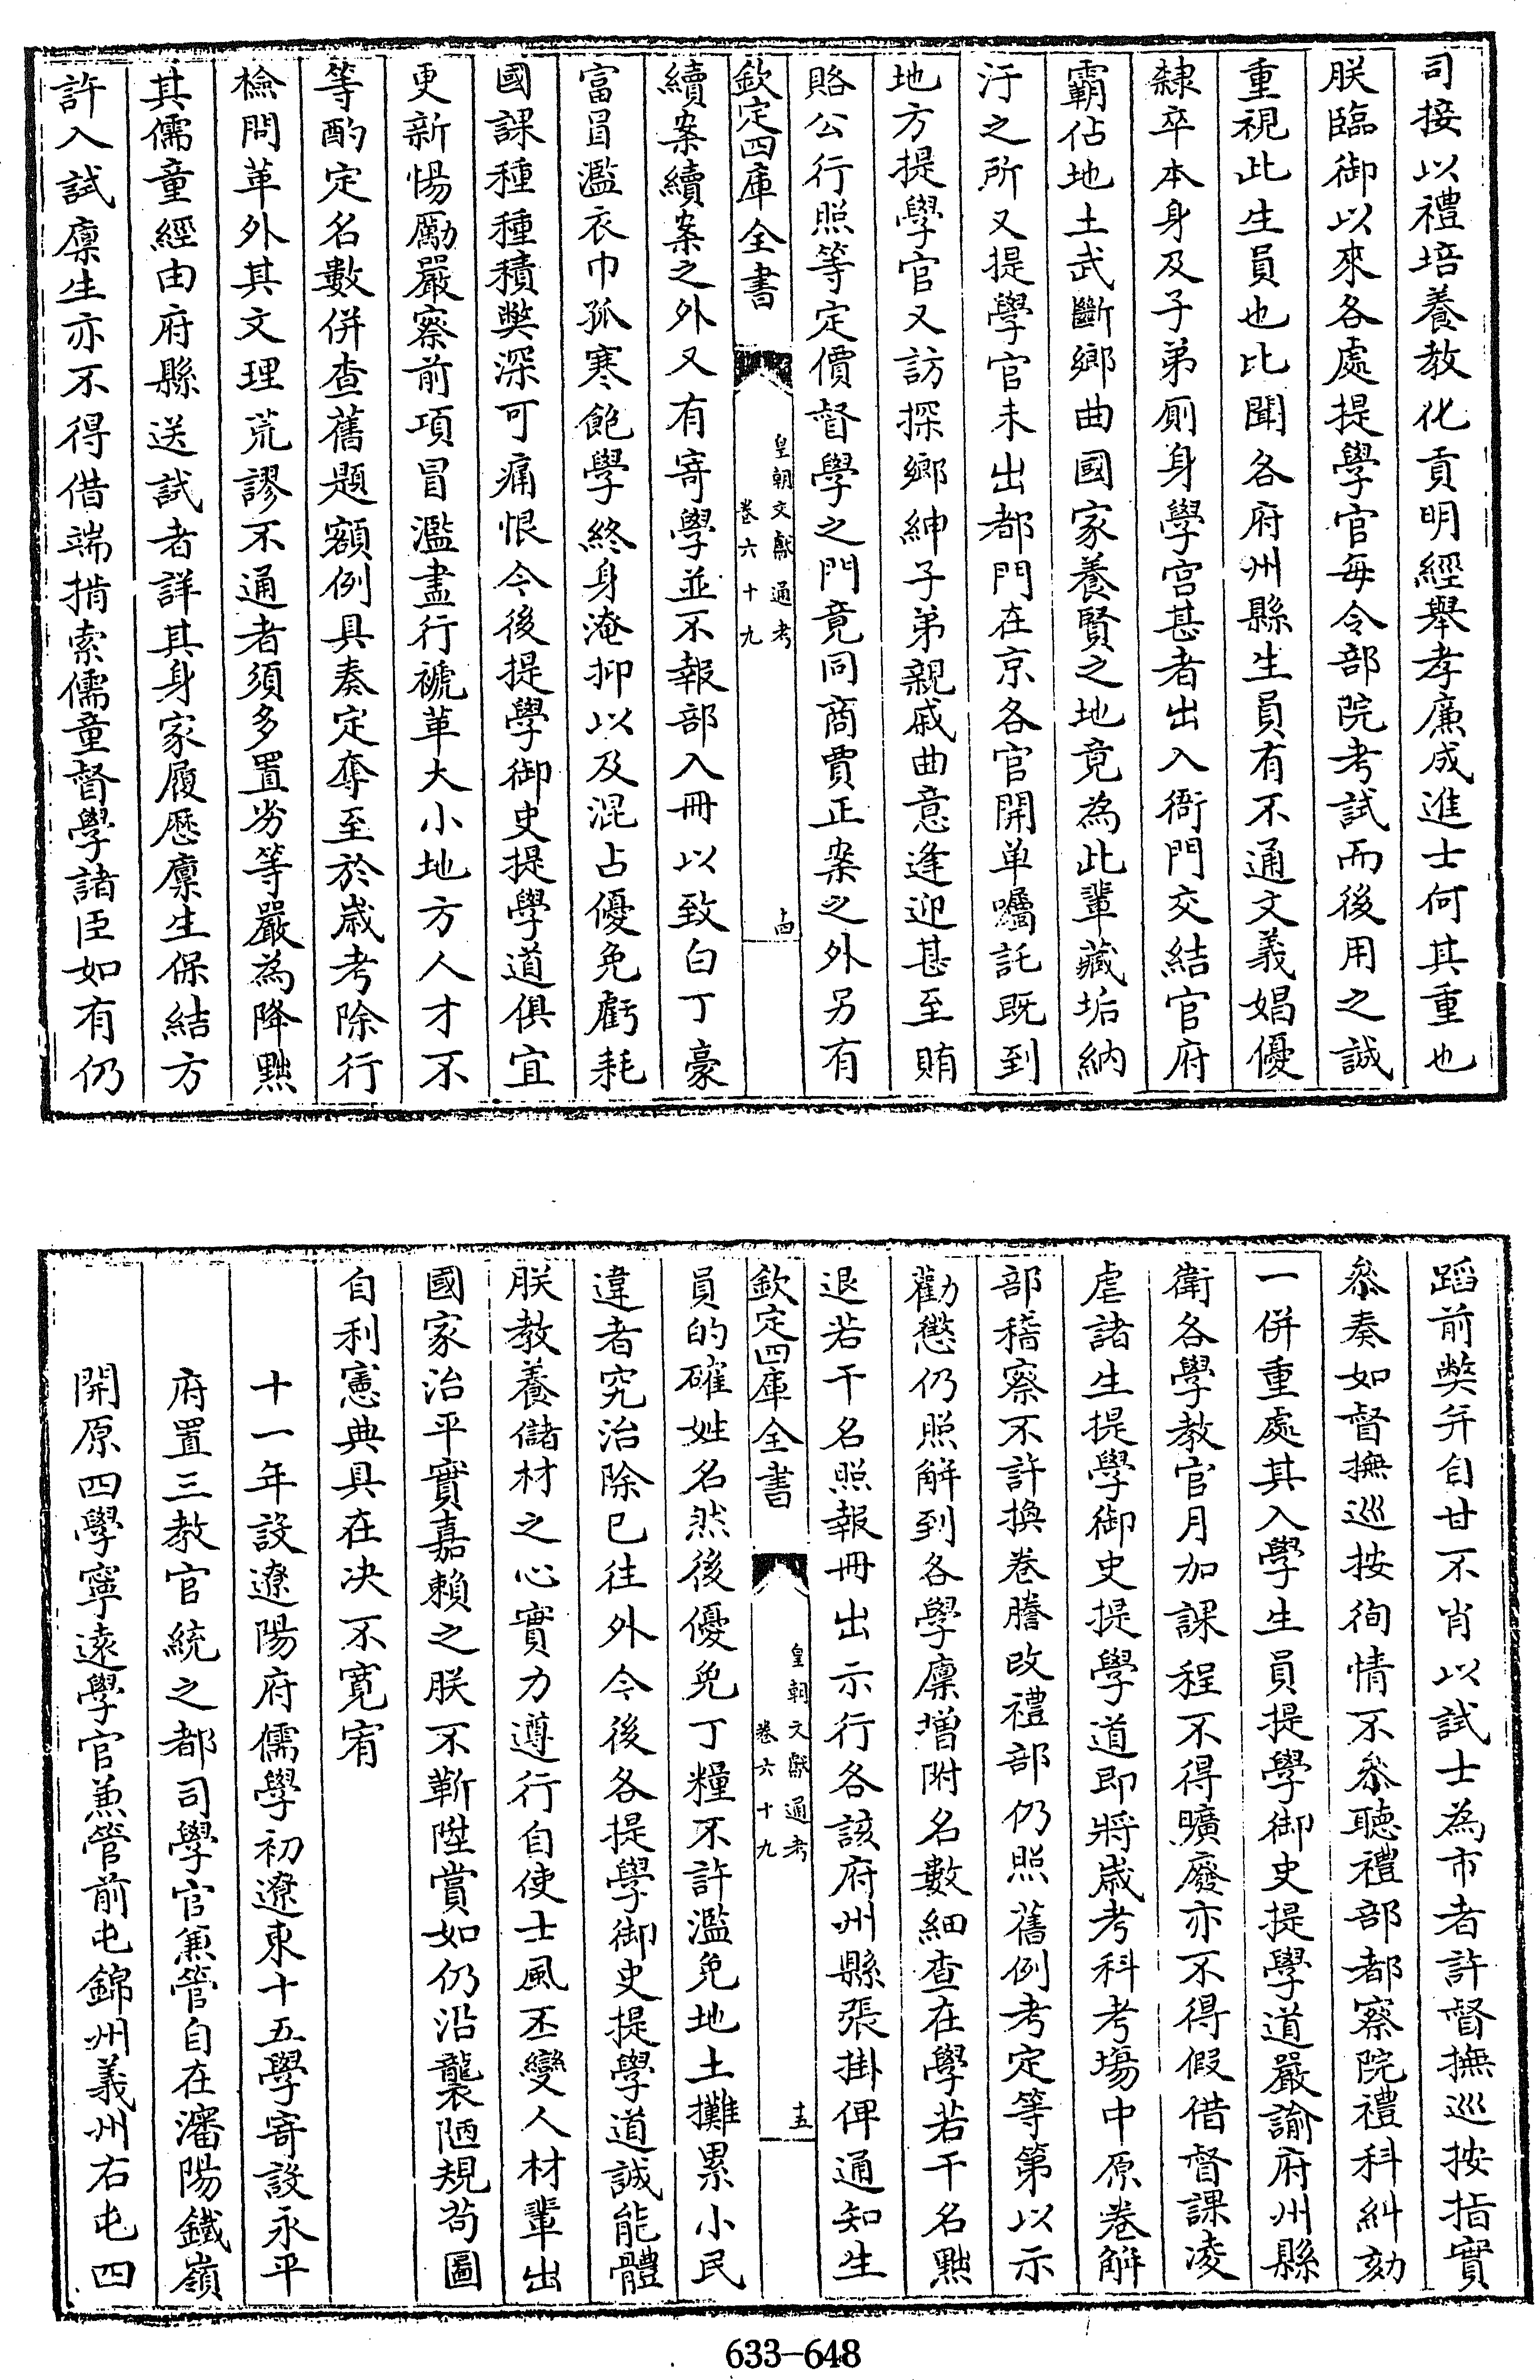 司接以禮培養教化貢明經舉孝廉成進士何其重也
朕臨御以來各處提學官每令部院考試而後用之誠
重視此生員也比聞各府州縣生員有不通文義娼優
隸卒本身及子弟厠身學宮甚者出入衙門交結官府
霸佔地土武斷鄉曲國家養賢之地竟為此輩藏垢納
汙之所又提學官未出都門在京各官開单囑託既到
地方提學官又訪探鄉紳子弟親戚曲意逢迎甚至賄
賂公行照等定價督學之門竟同商賈正案之外另有
欽定四庫全書
皇朝文獻通考
卷六十九
十四
續案續案之外又有寄學並不報部入冊以致白丁豪
富冒濫衣巾孤寒飽學終身淹抑以及混占優免虧耗
國課種種積弊深可痛恨今後提學御史提學道俱宜
更新惕勵嚴察前項冒濫盡行褫革大小地方人才不
等酌定名數併查舊題額例具奏定奪至於歲考除行
檢問革外其文理荒謬不通者須多置劣等嚴為降黜
其儒童經由府縣送試者詳其身家履歷廪生保結方
許入試廪生亦不得借端揹索儒童督學諸臣如有仍
蹈前弊并自甘不肖以試士為市者許督撫巡按指實
叅奏如督撫巡按徇情不叅聽禮部都察院禮科糾劾
一併重處其入學生員提學御史提學道嚴諭府州縣
衛各學教官月加課程不得曠廢亦不得假借督課凌
虐諸生提學御史提學道即將歲考科考塲中原卷解
部稽察不許換卷謄改禮部仍照舊例考定等第以示
勸懲仍照解到各學廪增附名數細查在學若干名黜
退若干名照報冊出示行各該府州縣張掛俾通知生
欽定四庫全書
皇朝文獻通考
卷六十九
十五
員的確姓名然後優免丁糧不許濫免地土攤累小民
違者究治除已往外今後各提學御史提學道誠能體
朕教養儲材之心實力遵行自使士風丕變人材輩出
國家治平實嘉賴之朕不靳陞賞如仍沿襲陋規苟圖
自利憲典具在决不寛宥
十一年設遼陽府儒學初遼東十五學寄設永平
府置三教官統之都司學官兼管自在瀋陽鐵嶺
開原四學寧遠學官兼管前屯錦州義州右屯四
633-648